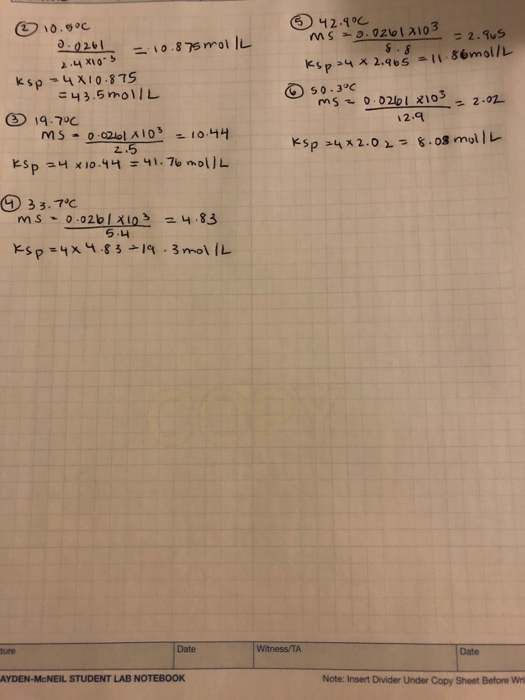 ② 10.5°C
0.0261
2.4 x10⁻³
= 10.875 mol/L
Ksp = 4 x10.875
= 43.5 mol/L
③ 19.7°C
MS = 0.0261 x10³ = 10.44
2.5
Ksp = 4 x 10.44 = 41.76 mol/L
④ 33.7°C
MS = 0.0261 x10³ = 4.83
5.4
Ksp = 4 x 4.83 = 19.3 mol/L
⑤ 42.9°C
MS = 0.0261 x10³ = 2.965
8.8
Ksp = 4 x 2.965 = 11.86 mol/L
⑥ 50.3°C
MS = 0.0261 x10³ = 2.02
12.9
Ksp = 4 x 2.02 = 8.08 mol/L
COPY
ture
Date
Witness/TA
Date
AYDEN-McNEIL STUDENT LAB NOTEBOOK
Note: Insert Divider Under Copy Sheet Before Wri